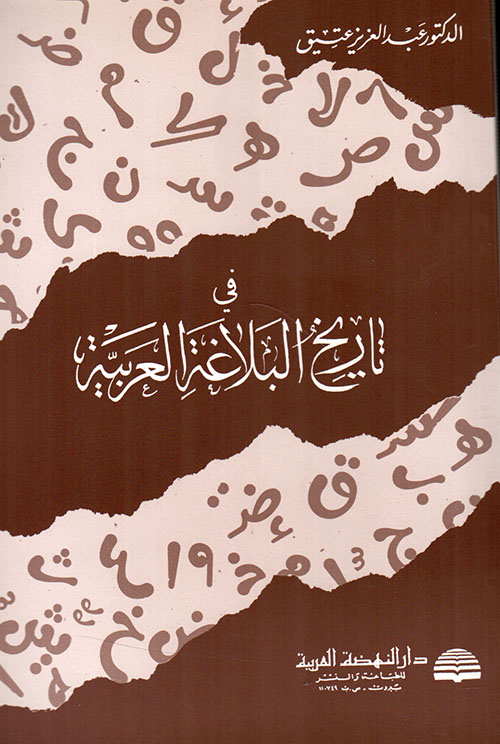 الدكتور عبد العزيز عتيق
في
تاريخ البلاغة العربية
دار النهضة العربية
للطباعة والنشر
بيروت - ص.ب ٧٤٩-١١